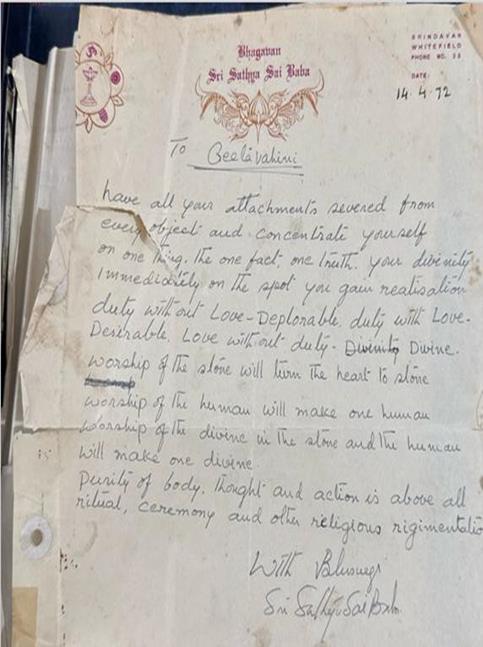 Bhagavan
Sri Sathya Sai Baba
BRINDAVAN
WHITEFIELD
PHONE NO. 33
DATE:
14.4.72
To Geetavahini
have all your attachments severed from
every object and concentrate yourself
on one thing. the one fact, one truth. your divinity
Immediately on the spot you gain realisation
duty without Love-Deplorable. duty with Love-
Desirable. Love without duty - Divinity Divine.
worship of the stone will turn the heart to stone
worship of the human will make one human
worship of the divine in the stone and the human
will make one divine
Purity of body, thought and action is above all
ritual, ceremony and other religious rigimentatio
With
Sri Sathya Sai Baba